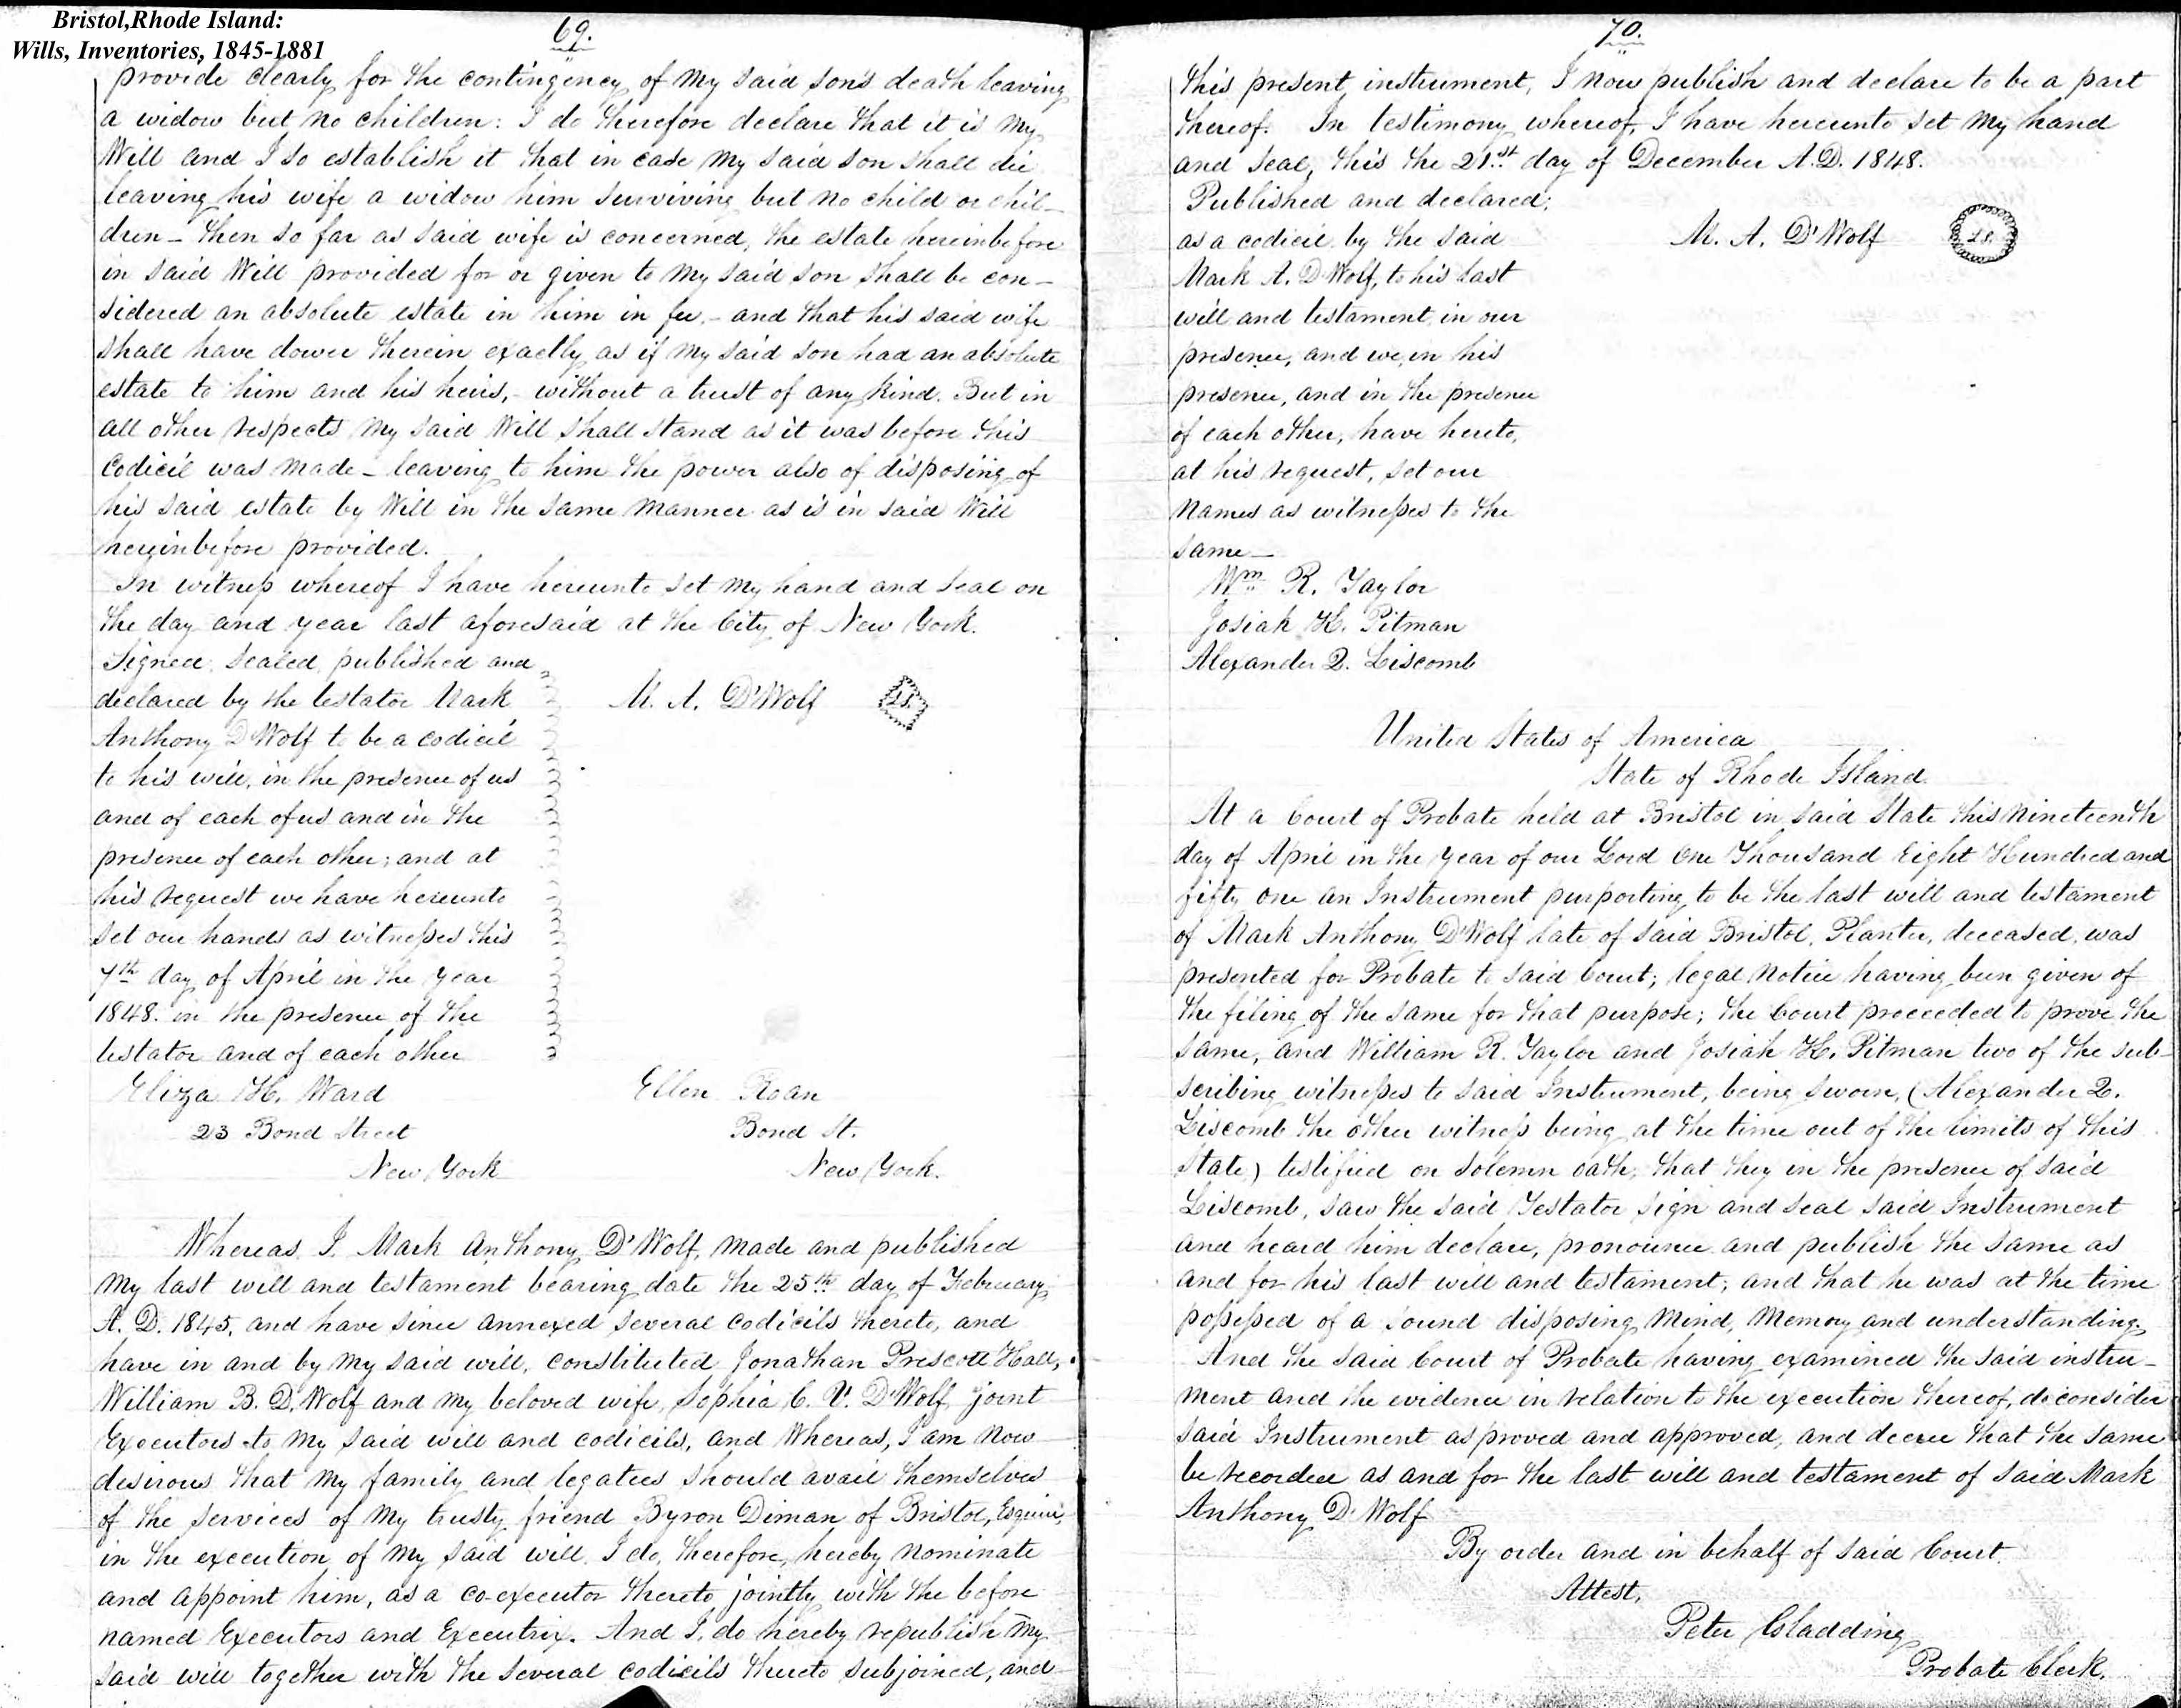 Bristol,Rhode Island:
Wills, Inventories, 1845-1881
69.
provide clearly for the contingency of my said son's death leaving
a widow but no children: I do therefore declare that it is my
Will and I so establish it that in case my said son shall die
leaving his wife a widow him surviving but no child or chil-
dren - then so far as said wife is concerned, the estate hereinbefore
in said Will provided for or given to my said son shall be con-
sidered an absolute estate in him in fee, - and that his said wife
shall have dower therein exactly as if my said son had an absolute
estate to him and his heirs, - without a trust of any kind. But in
all other respects my said Will shall stand as it was before this
Codicil was made - leaving to him the power also of disposing of
his said estate by Will in the same manner as is in said Will
hereinbefore provided.
In witness whereof I have hereunto set my hand and seal on
the day and year last aforesaid at the City of New York.
Signed, sealed, published and
declared by the testator Mark
M. A. D'Wolf L.S.
Anthony D'Wolf to be a codicil
to his will, in the presence of us
and of each of us and in the
presence of each other; and at
his request we have hereunto
set our hands as witnesses this
7th day of April in the year
1848. in the presence of the
testator and of each other
Eliza H. Ward
23 Bond Street
New York
Ellen Roan
Bond St.
New York.
Whereas, I, Mark Anthony D'Wolf, made and published
my last will and testament bearing date the 25th day of February
A. D. 1845, and have since annexed several codicils thereto, and
have in and by my said will, constituted Jonathan Prescott Hall,
William B. D'Wolf and my beloved wife, Sophia C. V. D'Wolf joint
Executors to my said will and codicils, and Whereas, I am now
desirous that my family and legatees should avail themselves
of the services of my trusty friend Byron Diman of Bristol, Esquire,
in the execution of my said will, I do, therefore, hereby nominate
and appoint him, as a co-executor thereto jointly with the before
named Executors and Executrix. And I, do hereby republish my
said will together with the several codicils thereto subjoined, and
70.
this present instrument, I now publish and declare to be a part
thereof. In testimony whereof, I have hereunto set my hand
and seal, this the 21st day of December A.D. 1848.
Published and declared,
as a codicil by the said
M. A. D'Wolf L.S.
Mark A. D'Wolf, to his last
will and testament, in our
presence, and we, in his
presence, and in the presence
of each other, have hereto,
at his request, set our
names as witnesses to the
same -
Wm R. Taylor
Josiah H. Pitman
Alexander Q. Liscomb
United States of America
State of Rhode Island
At a Court of Probate held at Bristol in said State this nineteenth
day of April in the year of our Lord One Thousand Eight Hundred and
fifty one an Instrument purporting to be the last will and testament
of Mark Anthony D'Wolf late of said Bristol, Planter, deceased, was
presented for Probate to said Court; legal notice having been given of
the filing of the same for that purpose; the Court proceeded to prove the
same, and William R. Taylor and Josiah H. Pitman two of the sub-
scribing witnesses to said Instrument, being sworn, (Alexander Q.
Liscomb the other witness being at the time out of the limits of this
State) testified on solemn oath, that they in the presence of said
Liscomb, saw the said Testator sign and seal said Instrument
and heard him declare, pronounce and publish the same as
and for his last will and testament; and that he was at the time
possessed of a sound disposing mind, memory and understanding.
And the said Court of Probate having examined the said instru-
ment and the evidence in relation to the execution thereof, do consider
said Instrument as proved and approved, and decree that the same
be recorded as and for the last will and testament of said Mark
Anthony D'Wolf
By order and in behalf of said Court.
Attest,
Peter Gladding
Probate Clerk.